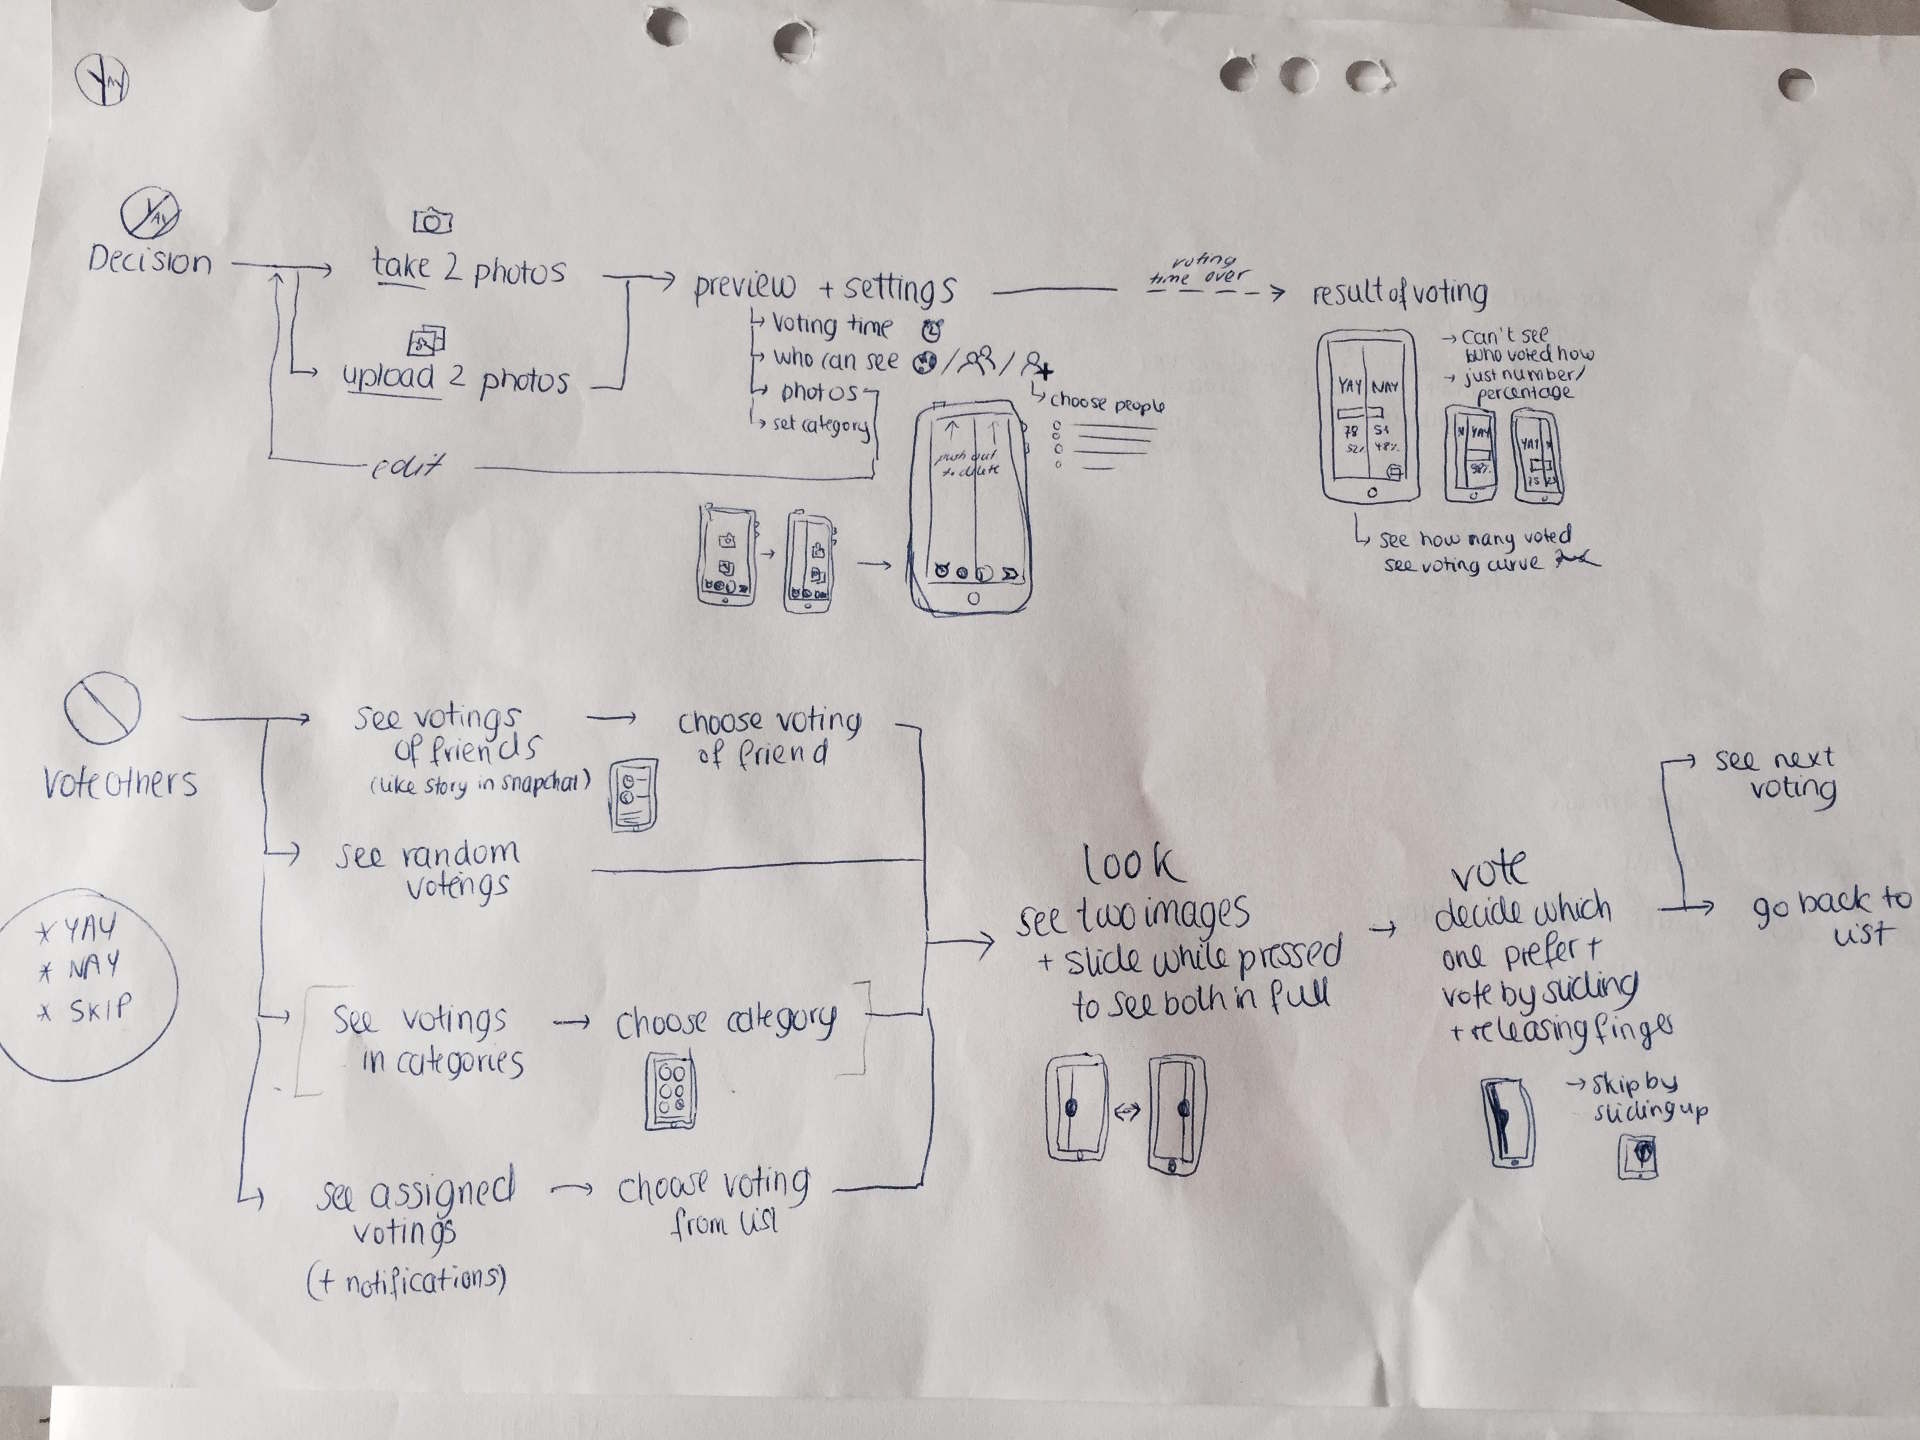 YAY
YAY
Decision
take 2 photos
upload 2 photos
edit
preview + settings
voting time
who can see
photos
set category
choose people
push out
to delete
voting
time over
result of voting
YAY NAY
78 51
52% 48%
can't see
who voted how
just number/
percentage
N YAY
98%
YAY N
75 25
see how many voted
see voting curve
Vote others
* YAY
* NAY
* SKIP
see votings
of friends
(like story in snapchat)
choose voting
of friend
see random
votings
See votings
in categories
choose category
see assigned
votings
(+ notifications)
choose voting
from list
look
see two images
+ slide while pressed
to see both in full
vote
decide which
one prefer +
vote by sliding
+ releasing finger
skip by
sliding up
see next
voting
go back to
list